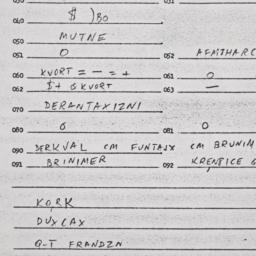 040 $ )BO
050 MUTNE
051 O 052 AFMTHARC
060 KVORT = - = + 061 O
062 $+ 6 KVORT 063 —
070 DERANTAXIZNI
080 6 081 O
090 DERKVAL CM FUNTAJX CM BRUNIM
091 BRINIMER 092 KRENTICE
KORK
DUXCAX
G-T FRANDZN